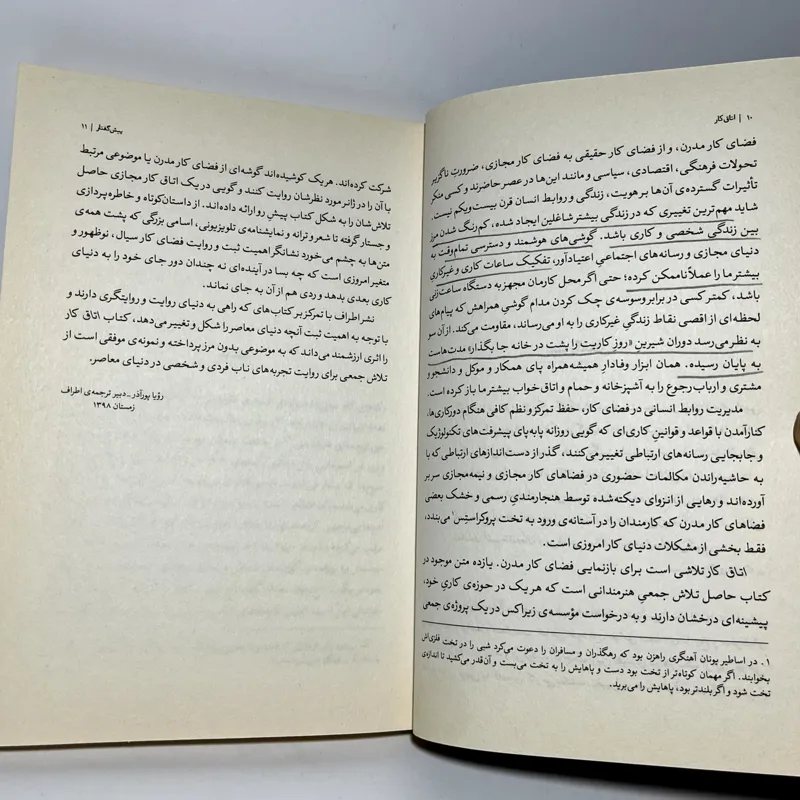 ۱۰ | اتاق کار
فضای کار مدرن، و از فضای کار حقیقی به فضای کار مجازی، ضرورتِ ناگزیر
تحولات فرهنگی، اقتصادی، سیاسی و مانند این‌ها در عصر حاضرند و کسی منکر
تأثیرات گسترده‌ی آن‌ها بر هویت، زندگی و روابط انسان قرن بیست‌ویکم نیست.
شاید مهم‌ترین تغییری که در زندگی بیشتر شاغلین ایجاد شده، کم‌رنگ شدن مرز
بین زندگی شخصی و کاری باشد. گوشی‌های هوشمند و دسترسی تمام‌وقت به
دنیای مجازی و رسانه‌های اجتماعیِ اعتیادآور، تفکیک ساعات کاری و غیرکاری
بیشتر ما را عملاً ناممکن کرده؛ حتی اگر محل کارمان مجهز به دستگاه ساعت‌زنی
باشد، کمتر کسی در برابر وسوسه‌ی چک کردن مدام گوشیِ همراهش که پیام‌های
لحظه‌ای از اقصی نقاط زندگیِ غیرکاری را به او می‌رساند، مقاومت می‌کند. از آن سو
به نظر می‌رسد دوران شیرینِ «روزِ کاریت را پشت در خانه جا بگذار» مدت‌هاست
به پایان رسیده. همان ابزار وفادارِ همیشه‌همراه پای همکار و موکل و دانشجو و
مشتری و ارباب رجوع را به آشپزخانه و حمام و اتاق‌خواب بیشتر ما باز کرده است.
مدیریت روابط انسانی در فضای کار، حفظ تمرکز و نظم کافی هنگام دورکاری‌ها،
کنارآمدن با قواعد و قوانینِ کاری‌ای که گویی روزانه پابه‌پای پیشرفت‌های تکنولوژیک
و جابجایی رسانه‌های ارتباطی تغییر می‌کنند، گذر از دست‌اندازهای ارتباطی که با
به حاشیه‌راندن مکالمات حضوری در فضاهای کار مجازی و نیمه‌مجازی سر بر
آورده‌اند و رهایی از انزوای دیکته‌شده توسط هنجارمندیِ رسمی و خشک بعضی
فضاهای کار مدرن که کارمندان را در آستانه‌ی ورود به تخت پروکراستِس۱ می‌بندد،
فقط بخشی از مشکلات دنیای کار امروزی است.
اتاق کار تلاشی است برای بازنمایی فضای کار مدرن. یازده متن موجود در
کتاب حاصل تلاش جمعیِ هنرمندانی است که هر یک در حوزه‌ی کاریِ خود،
پیشینه‌ای درخشان دارند و به درخواست مؤسسه‌ی زیراکس در یک پروژه‌ی جمعی
۱ـ در اساطیر یونان آهنگری راهزن بود که رهگذران و مسافران را دعوت می‌کرد شبی را در تخت فلزی‌اش
بخوابند. اگر مهمان کوتاه‌تر از تخت بود دست و پاهایش را به تخت می‌بست و آن‌قدر می‌کشید تا اندازه‌ی
تخت شود و اگر بلندتر بود، پاهایش را می‌برید.
پیش‌گفتار | ۱۱
شرکت کرده‌اند. هر یک کوشیده‌اند گوشه‌ای از فضای کار مدرن یا موضوعی مرتبط
با آن را در ژانر مورد نظرشان روایت کنند و گویی در یک اتاق کار مجازی حاصل
تلاش‌شان را به شکل کتاب پیشِ رو ارائه داده‌اند. از داستان‌کوتاه و خاطره‌پردازی
و جستار گرفته تا شعر و ترانه و نمایشنامه‌ی تلویزیونی، اسامی بزرگی که پشت همه‌ی
متن‌ها به چشم می‌خورد نشانگر اهمیت ثبت و روایت فضای کار سیال، نوظهور و
متغیر امروزی است که چه بسا در آینده‌ای نه چندان دور جای خود را به دنیای
کاری بعدی بدهد و ردی هم از آن به جای نماند.
نشر اطراف با تمرکز بر کتاب‌هایی که راهی به دنیای روایت و روایتگری دارند و
با توجه به اهمیت ثبت آنچه دنیای معاصر را شکل و تغییر می‌دهد، کتاب اتاق کار
را اثری ارزشمند می‌داند که به موضوعی بدون مرز پرداخته و نمونه‌ی موفقی است از
تلاش جمعی برای روایت تجربه‌های ناب فردی و شخصی در دنیای معاصر.
رؤیا پورآذر ـ دبیر ترجمه‌ی اطراف
زمستان ۱۳۹۸